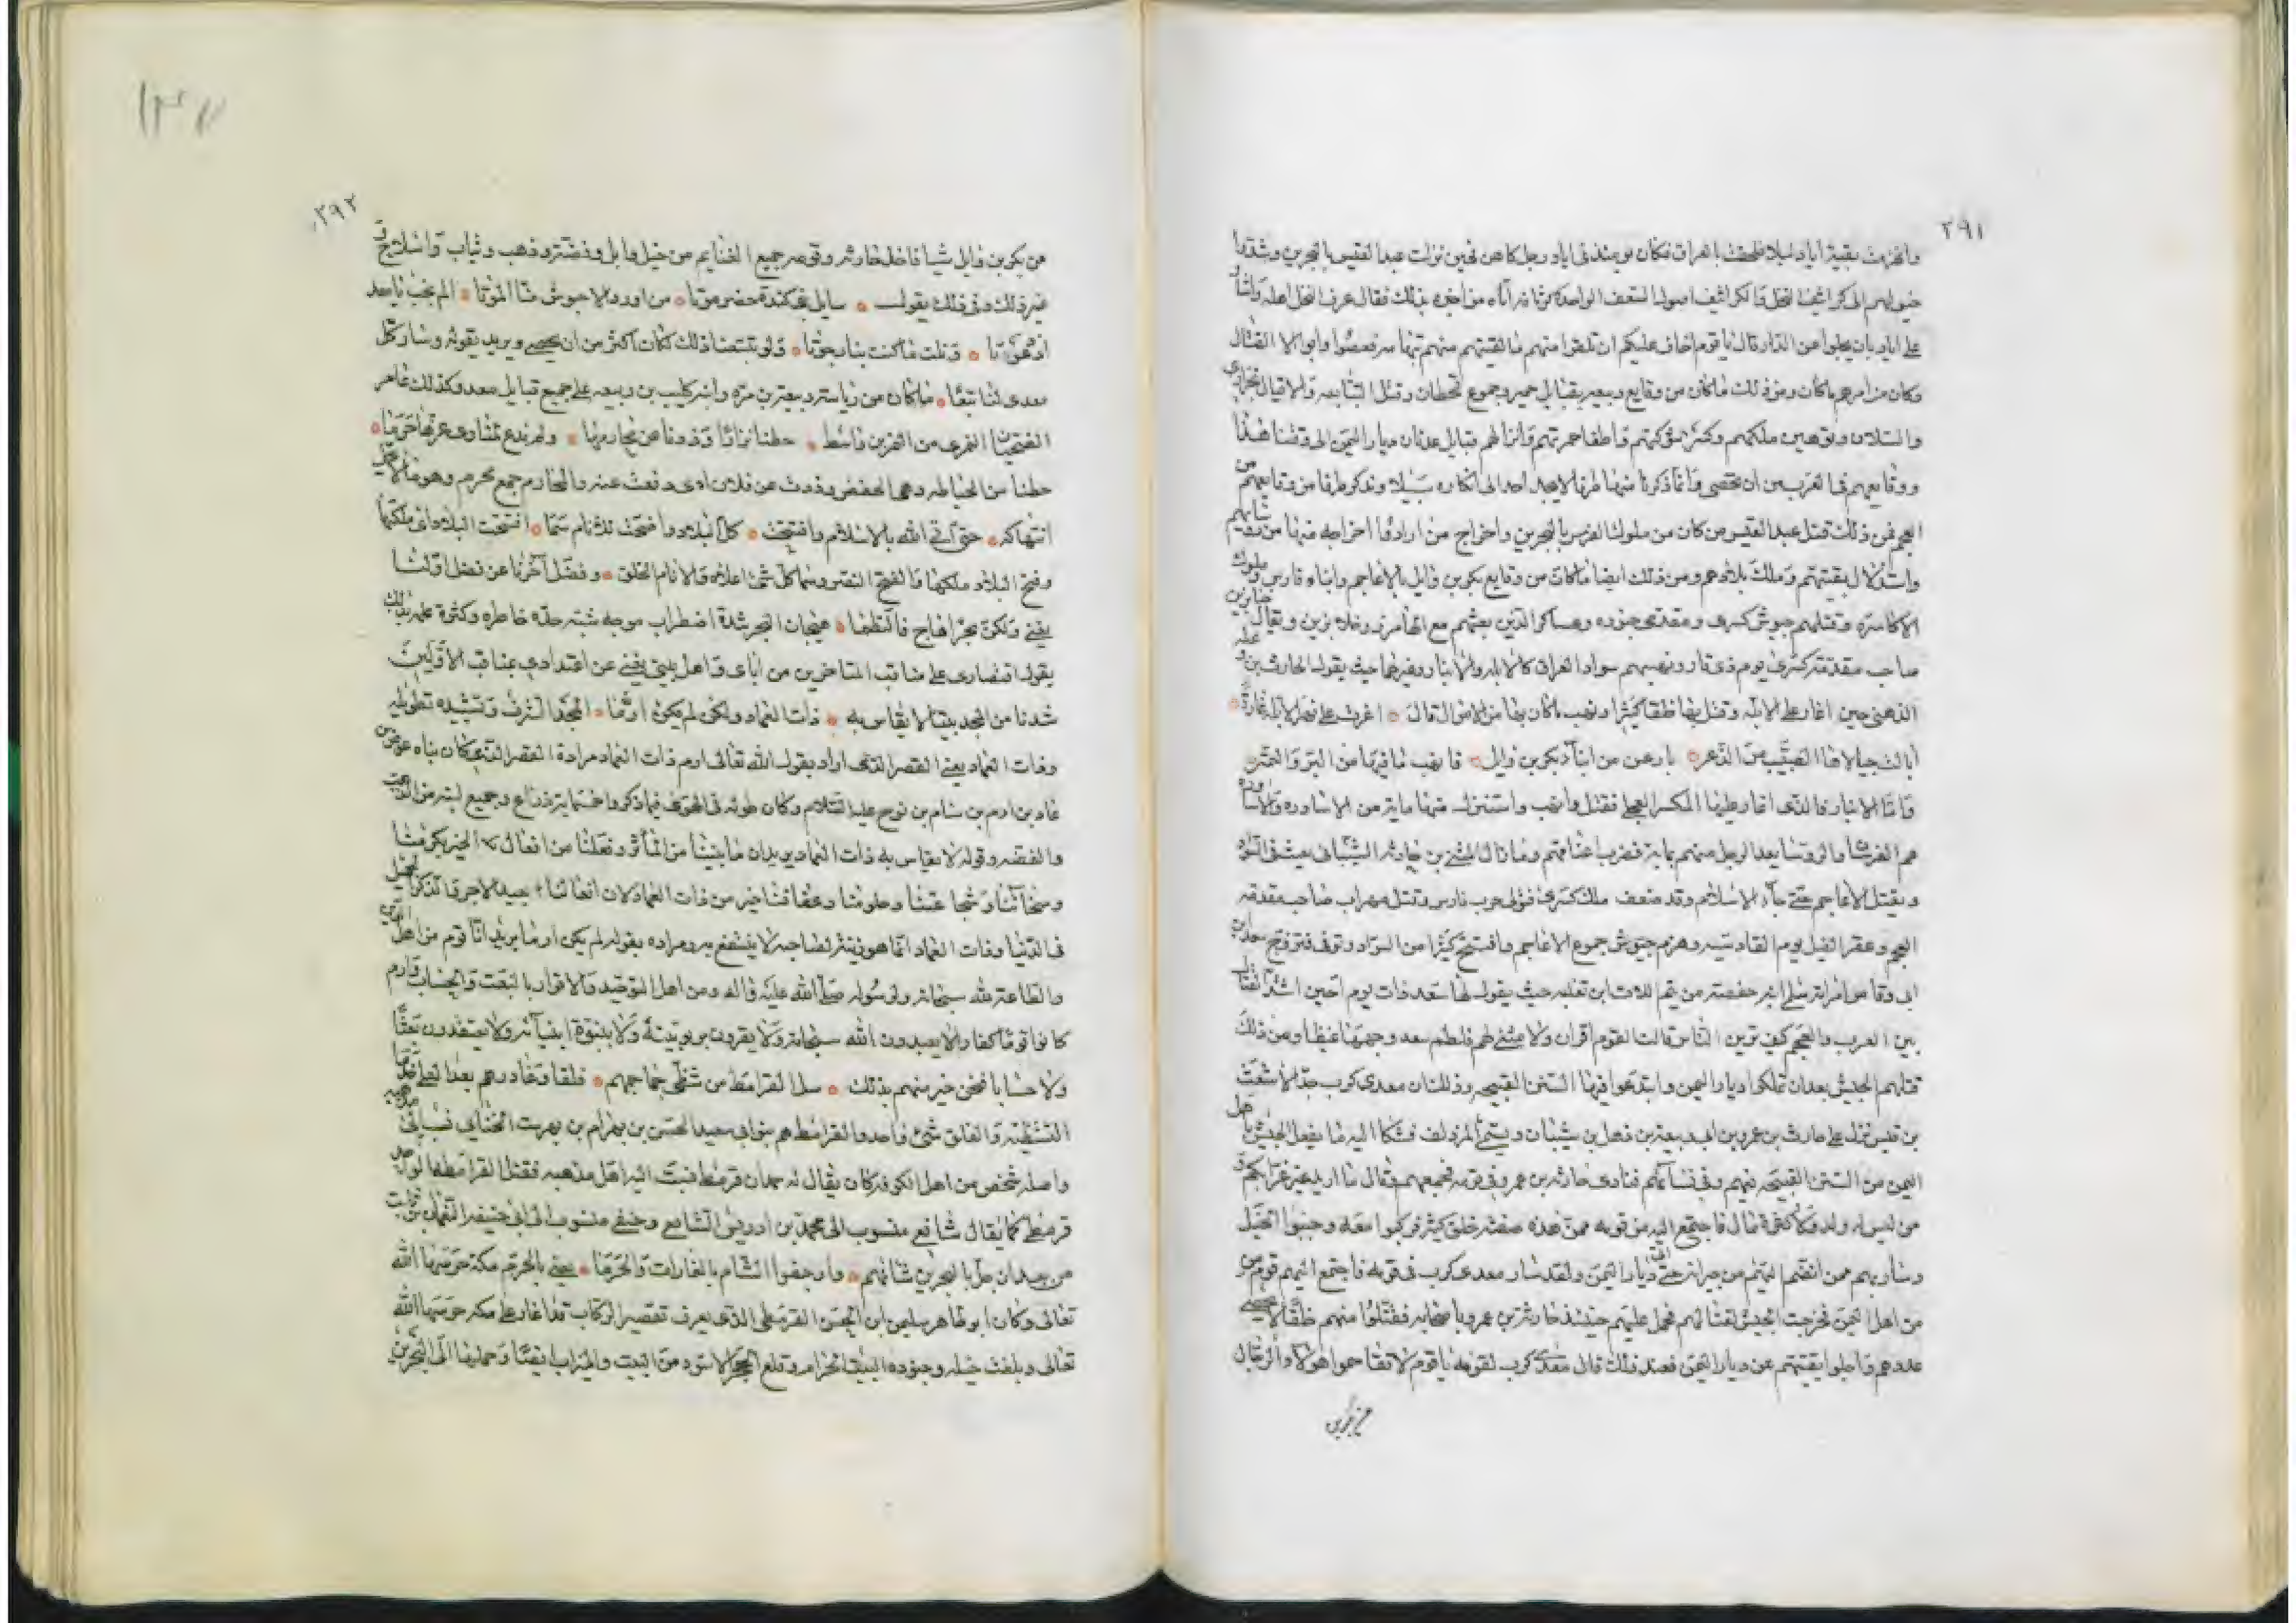 ٢٩١
وانحرفت بقية اياد ليلا فلحقت بالعراق فكان يومئذ فى اياد رجل كاهن فحين نزلت عبد القيس بالبحرين وشدوا
خيولهم الى كرانيف النخل قال من اخبره بذلك فقال عرف النخل اهله واشار
على اياد بان يجلوا عن الدار قال يا قوم اخاف عليكم ان تلقوا منهم ما لقيتم منهم بتهامه فعصوا وابوا الا القتال
وكان من امرهم ما كان ومن ذلك ما كان من وقايع ربيعه بقبايل حمير وجموع قحطان وقتل التبابعه والاقيال
وتوهين ملكهم وكسر شوكتهم واطفا جمرتهم قبايل عدنان ديار اليمن الى وقتنا هذا
ووقايعهم فيها اغرب من ان تحصى وانما ذكرنا منها طرفا لا يجد احد الى انكاره سبيلا ونذكر طرفا من وقايعهم
العجم فمن ذلك قتل عبد القيس من كان من ملوك الفرس بالبحرين واخراج من ارادوا اخراجه منها من رؤسائهم
بقيتهم وملك بلادهم ومن ذلك ايضا ما كان من وقايع بكر بن وايل بالاعاجم وابناء فارس وملوك
الاكاسره وقتلهم جيوش كسرى ومقدمى جنوده وعساكر الذين بعثهم مع الهامرز ويقال
صاحب مقدمة كسرى يوم ذى قار ونهبهم سواد العراق كالابله والانبار وغيرهما حيث يقول الحارث بن
الذهلى حين اغار على الابله وقتل بها خلقا كثيرا ونهب ما كان بها من الاموال قال • اغرت على اهل الابلة غارة •
بارعن من ابناء بكر بن وايل • فانهب ما فيها من البر والتمر
واما الانبار فالذى اغار عليها العجلى فقتل وانهب واستنزل منها ماية من الاساوره والاساوره
هم الفرسان والروسا يعد الرجل منهم بماية فضرب اعناقهم وما زال المثنى بن حارثه الشيبانى يعيث فى السواد
ويقتل الاعاجم حتى جاء الاسلام وقد ضعف ملك كسرى فولى حرب فارس وقتل مهراب صاحب مقدمة
العجم وعقر الفيل يوم القادسيه وهزم جيوش جموع الاعاجم وافتتح كثيرا من السواد وتوفى فتزوج سعد بن
ابى وقاص امراته سلمى ابنة حفصه من تيم اللات ابن ثعلبه حيث يقول لها سعد ذات يوم حين اشتد القتال
بين العرب والعجم كيف ترين الناس قالت القوم اقران ولا مثنى لهم فلطم سعد وجهها غيظا ومن ذلك
قتلهم الحبش بعد ان تملكوا ديار اليمن وابتدعوا فيها السنن القبيحه وذلك ان معدى كرب جد الاشعث
بن قيس نزل على حارث بن عمرو بن ابى ربيعة بن ذهل بن شيبان ويسمى المزدلف فشكا اليه ما يفعل الحبش باهل
اليمن من السنن القبيحه فيهم وفى نسائهم فنادى حارثه بن عمرو فى قومه فجمعهم وقال ما اريد غير عزابكم
من ليس له ولد قال فاجتمع اليه من قومه ممن هذه صفته خلق كثير فركبوا معه وجنبوا الخيل
وسار بهم ممن انضم اليهم من جيرانه حتى اتى ديار اليمن ولقد سار معدى كرب فى قومه فاجتمع اليهم قوم من
من اهل اليمن فخرجت الحبش لقتالهم فحمل عليهم حينئذ حارثة بن عمرو باصحابه فقتلوا منهم خلقا لا يحصى
عددهم واجلوا بقيتهم عن ديار اليمن فعند ذلك قال معدى كرب لقومه يا قوم هؤلاء الرجال
٢٩٢
من بكر بن وايل شيا فاخذ حارثه وقومه جميع الغنايم من خيل وابل وفضة وذهب وثياب واسلاح
غير ذلك وفى ذلك يقول • سايل بنى كندة حضرموتا • من اورد الاحبوش منا الموتا • الم يجب يا معد
• ونلت ما كنت بنا رجوتا • ولو تتبعنا ذلك لكان اكثر من ان يحصى ويريد بقوله وسار كل
معدى لنا تبعا • ما كان من رياسة ربيعة بن مره وابنه كليب بن ربيعه على جميع قبايل معد وكذلك عامر
• حطنا نزارا وذدنا عن محارمها • ولم ندع لمناوى عزها حرما •
حطنا من الحياطه وهى الحفظ وذدت عن فلان اى دفعت عنه والمحارم جمع محرم وهو ما لا يحل
انتهاكه • حتى اتى الله بالاسلام وافتتحت • كل البلاد واضحت للانام سما • افتتحت البلاد اى ملكتها
وفتح البلاد ملكها والفتح النصر وسما كل شئ اعلاه والانام الخلق • وفضل آخرنا عن فضل اولنا
يغنى ولكن بحر هاج فالتطما • هيجان البحر شدة اضطراب موجه شبه حدة خاطره وكثرة علمه بذلك
يقول اقتصارى على مناقب المتاخرين من اباى واهل بيتى يغنى عن اعتدادى بمناقب الاولين
شدنا من المجد بيتا لا يقاس به • ذات العماد ولكن لم يكن ارما • المجد الشرف وتشييده تطويله
وذات العماد يعنى القصر الذى اراد بقول الله تعالى ارم ذات العماد مراده القصر الذى كان بناه
عاد بن ارم بن سام بن نوح عليه السلام وكان طوله فى الهوى فيما ذكروا خمسماية ذراع وجميع لبنه من الذهب
والفضه وقوله لا يقاس به ذات العماد يريد ان ما بنينا من المآثر وفعلنا من افعال الخير بكرمنا
وسخائنا وشجاعتنا وحلومنا وعفافنا خير من ذات العماد لان افعالنا جميل
فى الدنيا وذات العماد انما هو زينة لصاحبه لا ينتفع به ومراده بقوله لم يكن ارما يريد انا قوم من اهل الدين
والطاعة لله سبحانه ولرسوله صلى الله عليه واله ومن اهل التوحيد والاقرار بالبعث والحساب وارم
كانوا قوما كفارا لا يعبدون الله سبحانه ولا يقرون بربوبيته ولا بنبوة انبيائه ولا يعتقدون بعثا
ولا حسابا فنحن خير منهم بذلك • سل القرامط من شظى جماجمهم • فلقا وغادرهم بعد العلى خدما
التشظيه والفلق شئ واحد والقرامط هم بنو ابى سعيد الحسن بن بهرام بن بهرست الجنابى
واصله شخص من اهل الكوفه كان يقال له حمدان قرمط فنسب اليه اهل مذهبه فقيل القرامطه
قرمطى كما يقال شافعى منسوب الى محمد بن ادريس الشافعى وحنفى منسوب الى ابى حنيفه النعمان بن ثابت
من بعد ان جل بالبحرين شانهم • وارجفوا الشام بالغارات والحرما • يعنى بالحرم مكة حرسها الله
تعالى وكان ابو طاهر سليمن ابن الحسن القرمطى الذى يعرف بقصير الركاب قد اغار على مكه حرسها الله
تعالى ودخلت خيله وجنوده البيت الحرام وقلع الحجر الاسود من البيت والميزاب ايضا وحملها الى البحرين